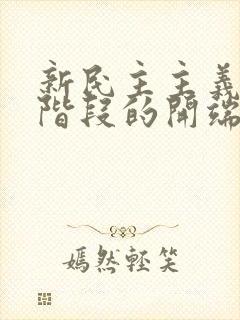 新民主主義
階段的開端
嫣然輕笑